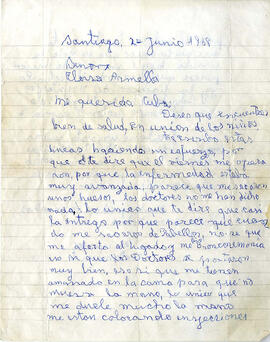 Santiago, 2 Junio 1978
Señora
Eliana Armella
Mi querida
Deseo que encuentres
bien de salud, en union de los niños
estas
lineas haciendo un esfuerzo, por
que te dire que el viernes me opera
ron, por que la enfermedad estaba
muy avanzada, parece que me sacaron
unos huesos, los doctores no me han dicho
nada, lo unico que te digo que casi
la entrego por que parece que cuan
do me sacaron de Pabellon, no se que
me afecto al higado y me
los Doctores se portaron
muy bien, eso si que me tienen
amarrado en la cama para que no
mueva la mano, lo unico que
me duele mucho la mano
me estan colocando inyecciones